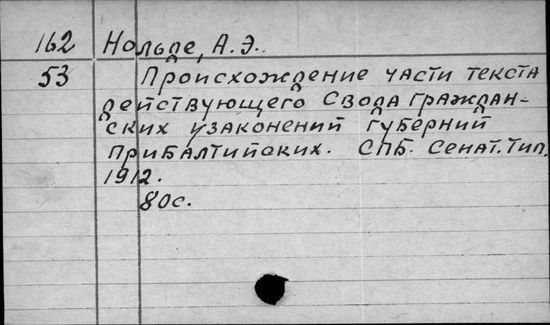 162 Нольде, А.Э.
53 Происхождение части текста
действующего Свода граждан-
ских узаконений губерний
Прибалтийских. СПБ. Сенат. Тип.
1912.
80с.